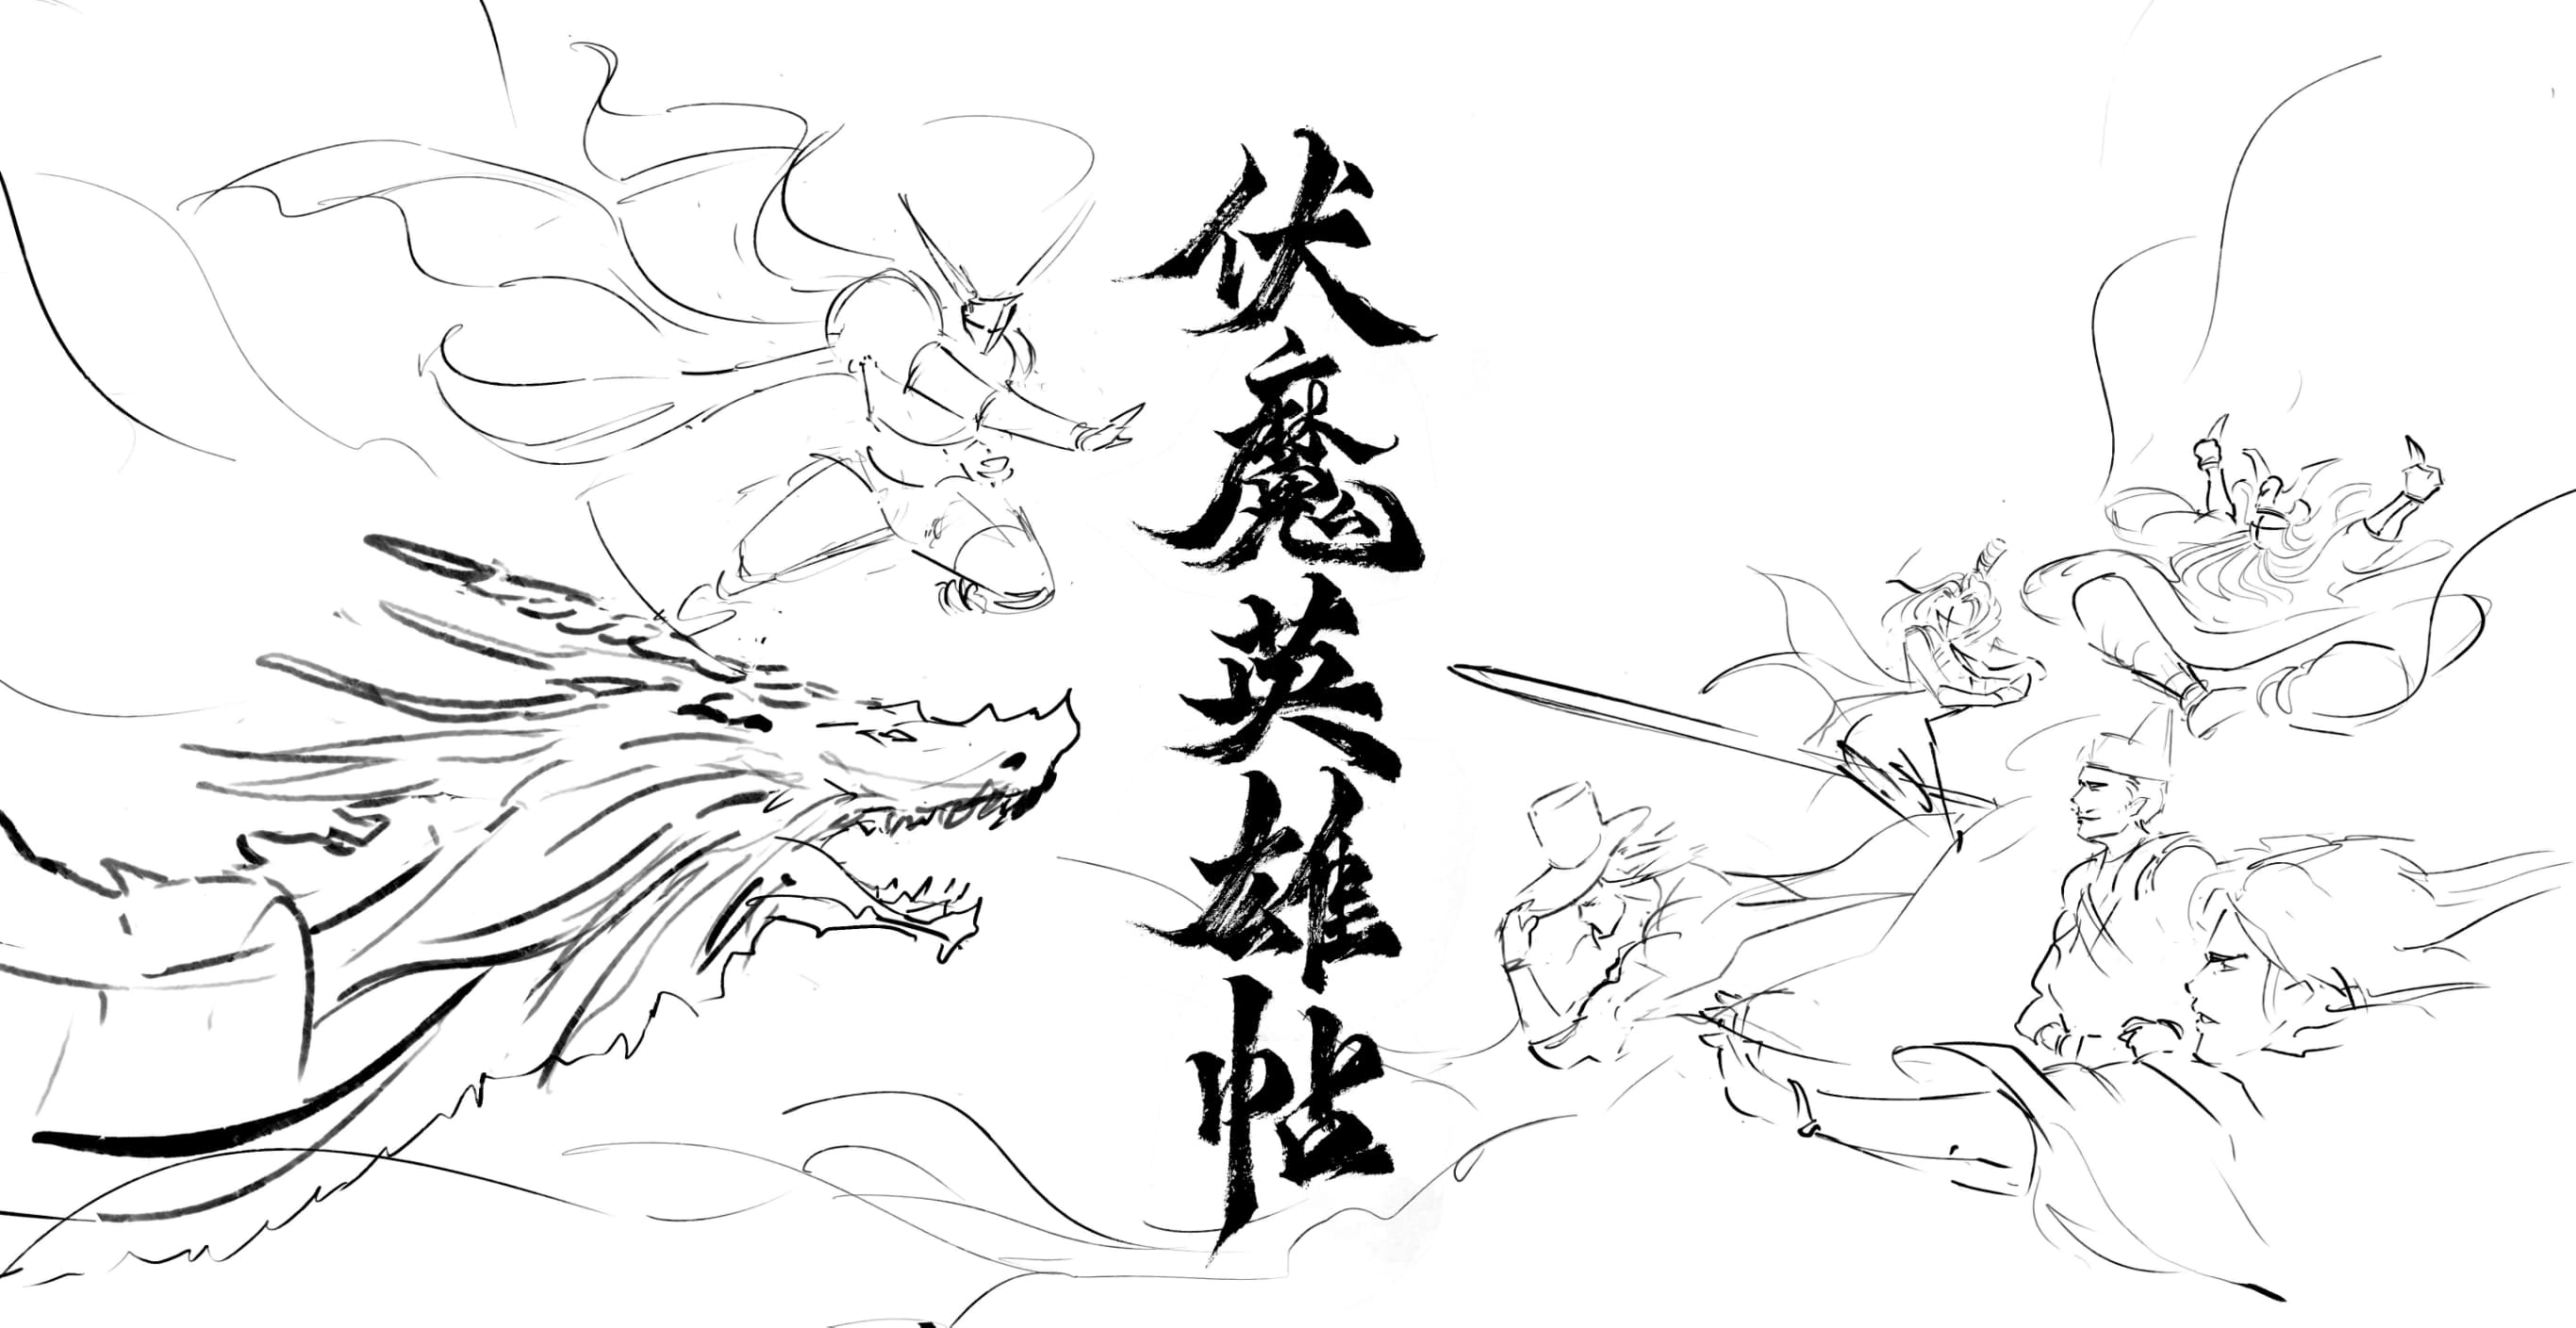 伏魔英雄帖